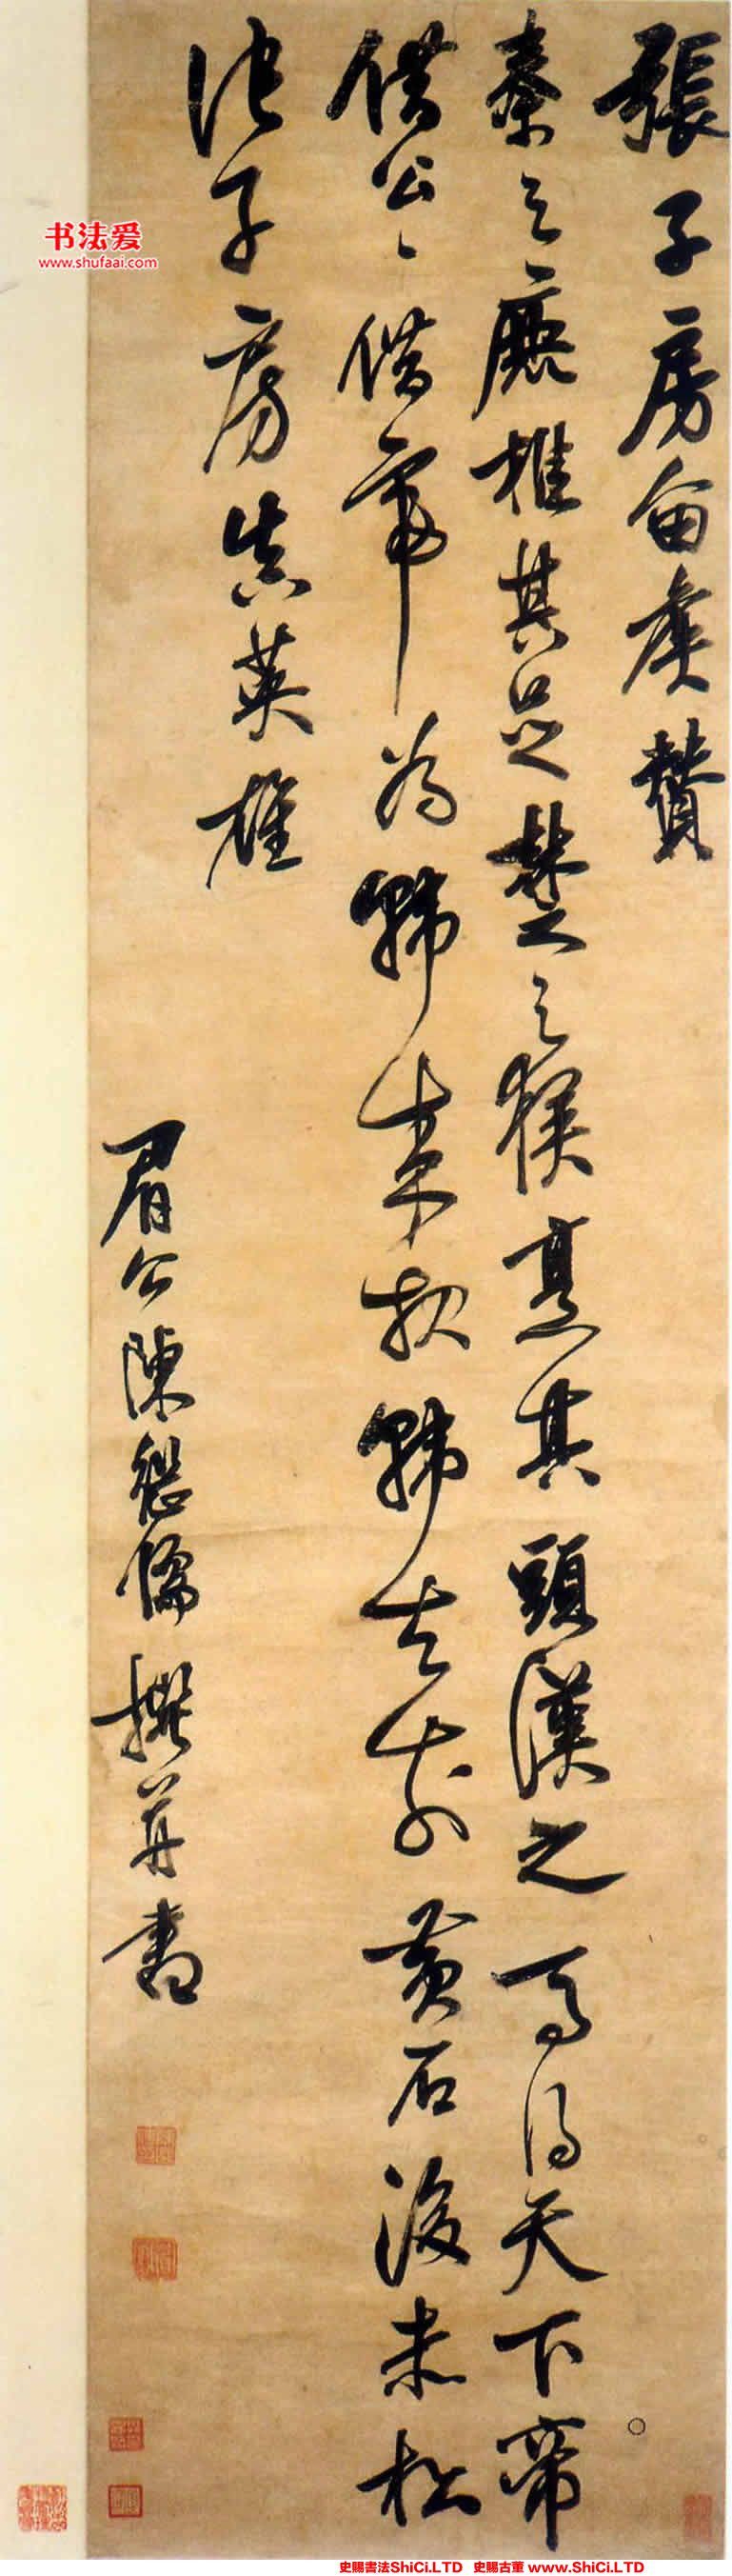 張子房留侯贊
秦之鹿椎其足楚之猴烹其頭漢之得天下帝
借公〻借帝為韓來報韓去前黃石後赤松
張子房真英雄
眉公陳繼儒撰并書
书法爱
www.shufaai.com
史賜書法ShiCi.LTD 史賜古董 www.ShiCi.LTD